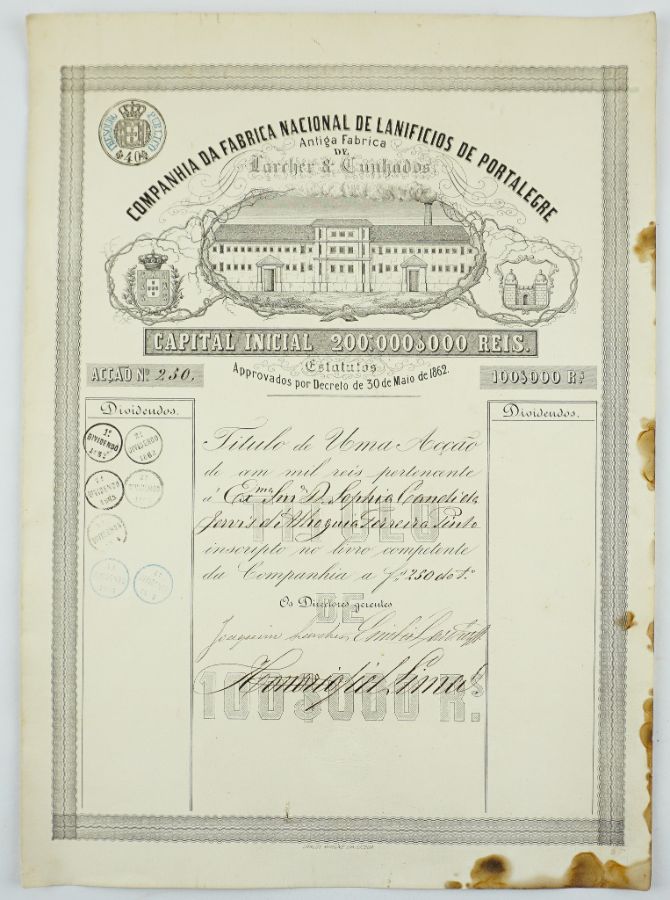 THESOURO PUBLICO
40
COMPANHIA DA FABRICA NACIONAL DE LANIFICIOS DE PORTALEGRE
Antiga Fabrica
DE
Larcher & Cunhados
CAPITAL INICIAL 200:000$000 REIS.
Estatutos
Approvados por Decreto de 30 de Maio de 1862.
ACCÃO Nº 250.
100$000 Rs
Dividendos.
Dividendos.
1º DIVIDENDO
2º DIVIDENDO 1862
DIVIDENDO
DIVIDENDO
DIVIDENDO
Titulo de Uma Acção
de cem mil reis pertencente
á Exma Snra D. Sophia Candida
Jervis d'Athoguia Ferreira Pinto
inscripto no livro competente
da Companhia a fs 250 do 1º
TITULO
Os Directores gerentes
DE
Joaquim Larcher
100$000 R.s